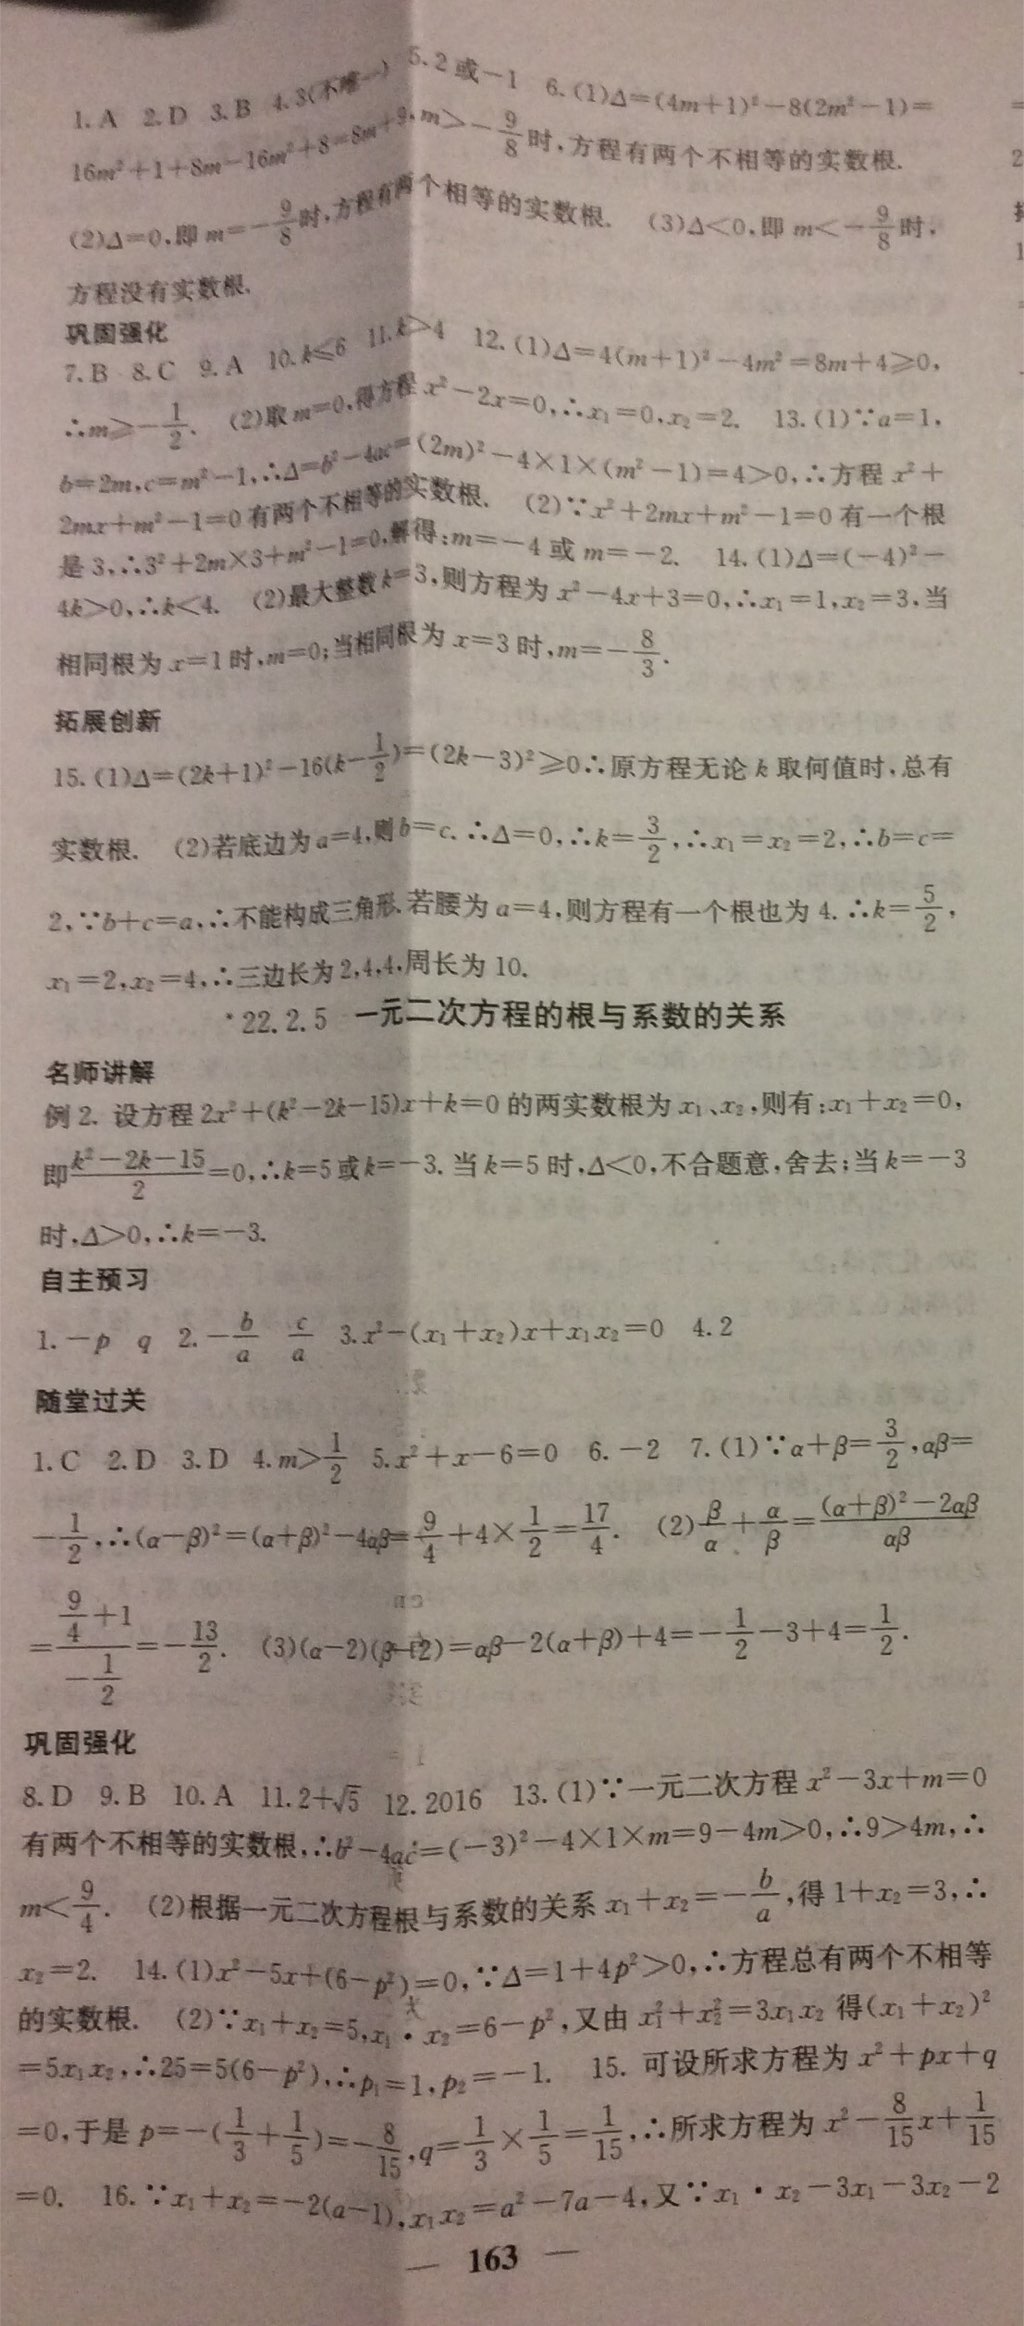 1. A 2. D 3. B 4. 3(不唯一) 5. 2 或 −1 6. (1)Δ=(4m+1)²−8(2m²−1)=
16m²+1+8m−16m²+8=8m+9, m>−9/8 时,方程有两个不相等的实数根.
(2)Δ=0,即 m=−9/8 时,方程有两个相等的实数根. (3)Δ<0,即 m<−9/8 时,
方程没有实数根.
巩固强化
7. B 8. C 9. A 10. k≤6 11. k>4 12. (1)Δ=4(m+1)²−4m²=8m+4≥0,
∴m≥−1/2. (2)取 m=0,得方程 x²−2x=0,∴x₁=0,x₂=2. 13. (1)∵a=1,
b=2m,c=m²−1,∴Δ=b²−4ac=(2m)²−4×1×(m²−1)=4>0,∴方程 x²+
2mx+m²−1=0 有两个不相等的实数根. (2)∵x²+2mx+m²−1=0 有一个根
是 3,∴3²+2m×3+m²−1=0,解得:m=−4 或 m=−2. 14. (1)Δ=(−4)²−
4k>0,∴k<4. (2)最大整数 k=3,则方程为 x²−4x+3=0,∴x₁=1,x₂=3,当
相同根为 x=1 时,m=0;当相同根为 x=3 时,m=−8/3.
拓展创新
15. (1)Δ=(2k+1)²−16(k−1/2)=(2k−3)²≥0∴原方程无论 k 取何值时,总有
实数根. (2)若底边为 a=4,则 b=c. ∴Δ=0,∴k=3/2,∴x₁=x₂=2,∴b=c=
2,∵b+c=a,∴不能构成三角形.若腰为 a=4,则方程有一个根也为 4. ∴k=5/2,
x₁=2,x₂=4,∴三边长为 2,4,4.周长为 10.
*22.2.5 一元二次方程的根与系数的关系
名师讲解
例 2. 设方程 2x²+(k²−2k−15)x+k=0 的两实数根为 x₁、x₂,则有:x₁+x₂=0,
即(k²−2k−15)/2=0,∴k=5 或 k=−3. 当 k=5 时,Δ<0,不合题意,舍去;当 k=−3
时,Δ>0,∴k=−3.
自主预习
1. −p q 2. −b/a c/a 3. x²−(x₁+x₂)x+x₁x₂=0 4. 2
随堂过关
1. C 2. D 3. D 4. m>1/2 5. x²+x−6=0 6. −2 7. (1)∵α+β=3/2,αβ=
−1/2,∴(α−β)²=(α+β)²−4αβ=9/4+4×1/2=17/4. (2)β/α+α/β=((α+β)²−2αβ)/αβ
=(9/4+1)/(−1/2)=−13/2. (3)(α−2)(β−2)=αβ−2(α+β)+4=−1/2−3+4=1/2.
巩固强化
8. D 9. B 10. A 11. 2+√5 12. 2016 13. (1)∵一元二次方程 x²−3x+m=0
有两个不相等的实数根,∴b²−4ac=(−3)²−4×1×m=9−4m>0,∴9>4m,∴
m<9/4. (2)根据一元二次方程根与系数的关系 x₁+x₂=−b/a,得 1+x₂=3,∴
x₂=2. 14. (1)x²−5x+(6−p²)=0,∵Δ=1+4p²>0,∴方程总有两个不相等
的实数根. (2)∵x₁+x₂=5,x₁·x₂=6−p²,又由 x₁²+x₂²=3x₁x₂ 得(x₁+x₂)²
=5x₁x₂,∴25=5(6−p²),∴p₁=1,p₂=−1. 15. 可设所求方程为 x²+px+q
=0,于是 p=−(1/3+1/5)=−8/15,q=1/3×1/5=1/15,∴所求方程为 x²−8/15x+1/15
=0. 16. ∵x₁+x₂=−2(a−1),x₁x₂=a²−7a−4,又∵x₁·x₂−3x₁−3x₂−2
— 163 —